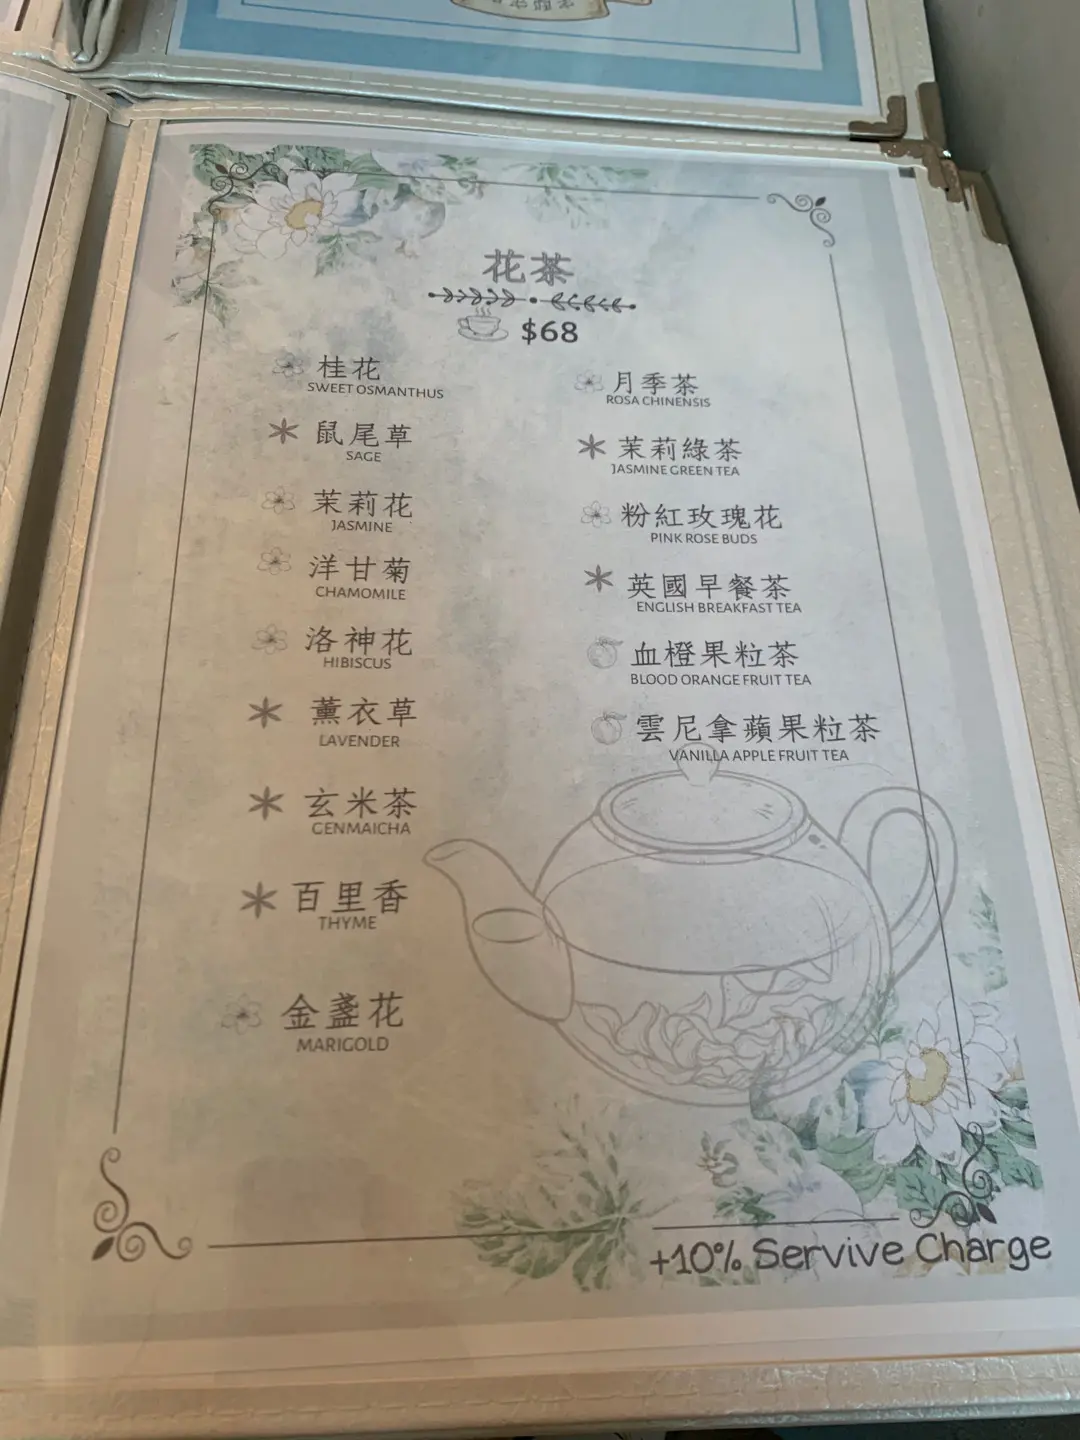 花茶
$68
桂花
SWEET OSMANTHUS
鼠尾草
SAGE
茉莉花
JASMINE
洋甘菊
CHAMOMILE
洛神花
HIBISCUS
薰衣草
LAVENDER
玄米茶
GENMAICHA
百里香
THYME
金盞花
MARIGOLD
月季茶
ROSA CHINENSIS
茉莉綠茶
JASMINE GREEN TEA
粉紅玫瑰花
PINK ROSE BUDS
英國早餐茶
ENGLISH BREAKFAST TEA
血橙果粒茶
BLOOD ORANGE FRUIT TEA
雲尼拿蘋果粒茶
VANILLA APPLE FRUIT TEA
+10% Servive Charge